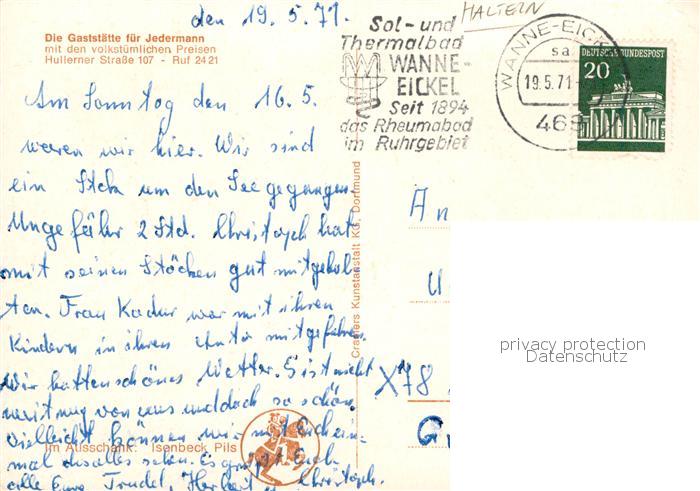 den 19.5.71.
HALTERN
Die Gaststätte für Jedermann
mit den volkstümlichen Preisen
Hullerner Straße 107 - Ruf 24 21
Sol- und
Thermalbad
WANNE-
EICKEL
Seit 1894
das Rheumabad
im Ruhrgebiet
WANNE-EICK
sa
19.5.71
469
DEUTSCHE BUNDESPOST
20
Am Sonntag den 16.5.
waren wir hier. Wir sind
ein Stck um den See gegangen
Ungefähr 2 Std. Christoph hat
mit seinen Stöcken gut mitgehal-
ten. Frau Kadur war mit ihren
Kindern in ihren Auto mitgefahren.
Wir hatten schönes Wetter. Es ist nicht
weit weg von uns und doch so schön.
Vielleicht können wir mit Euch ein-
mal das alles sehen. Es grüßt Euch
alle Eure Trudel, Herbert u. Christoph.
Im Ausschank: Isenbeck Pils
Cramers Kunstanstalt KG, Dortmund
An
X78
G
privacy protection
Datenschutz